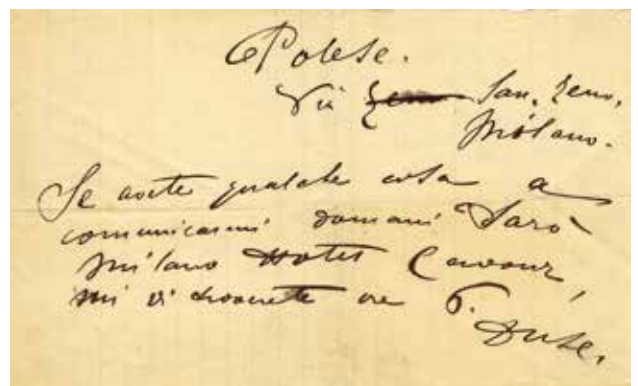 Polese.
Via ~~Zeno~~ San. Zeno,
Milano.
Se avete qualche cosa a
comunicarmi domani Sarò
Milano Hotel Cavour,
mi vi troverete ore 6.
Duse.